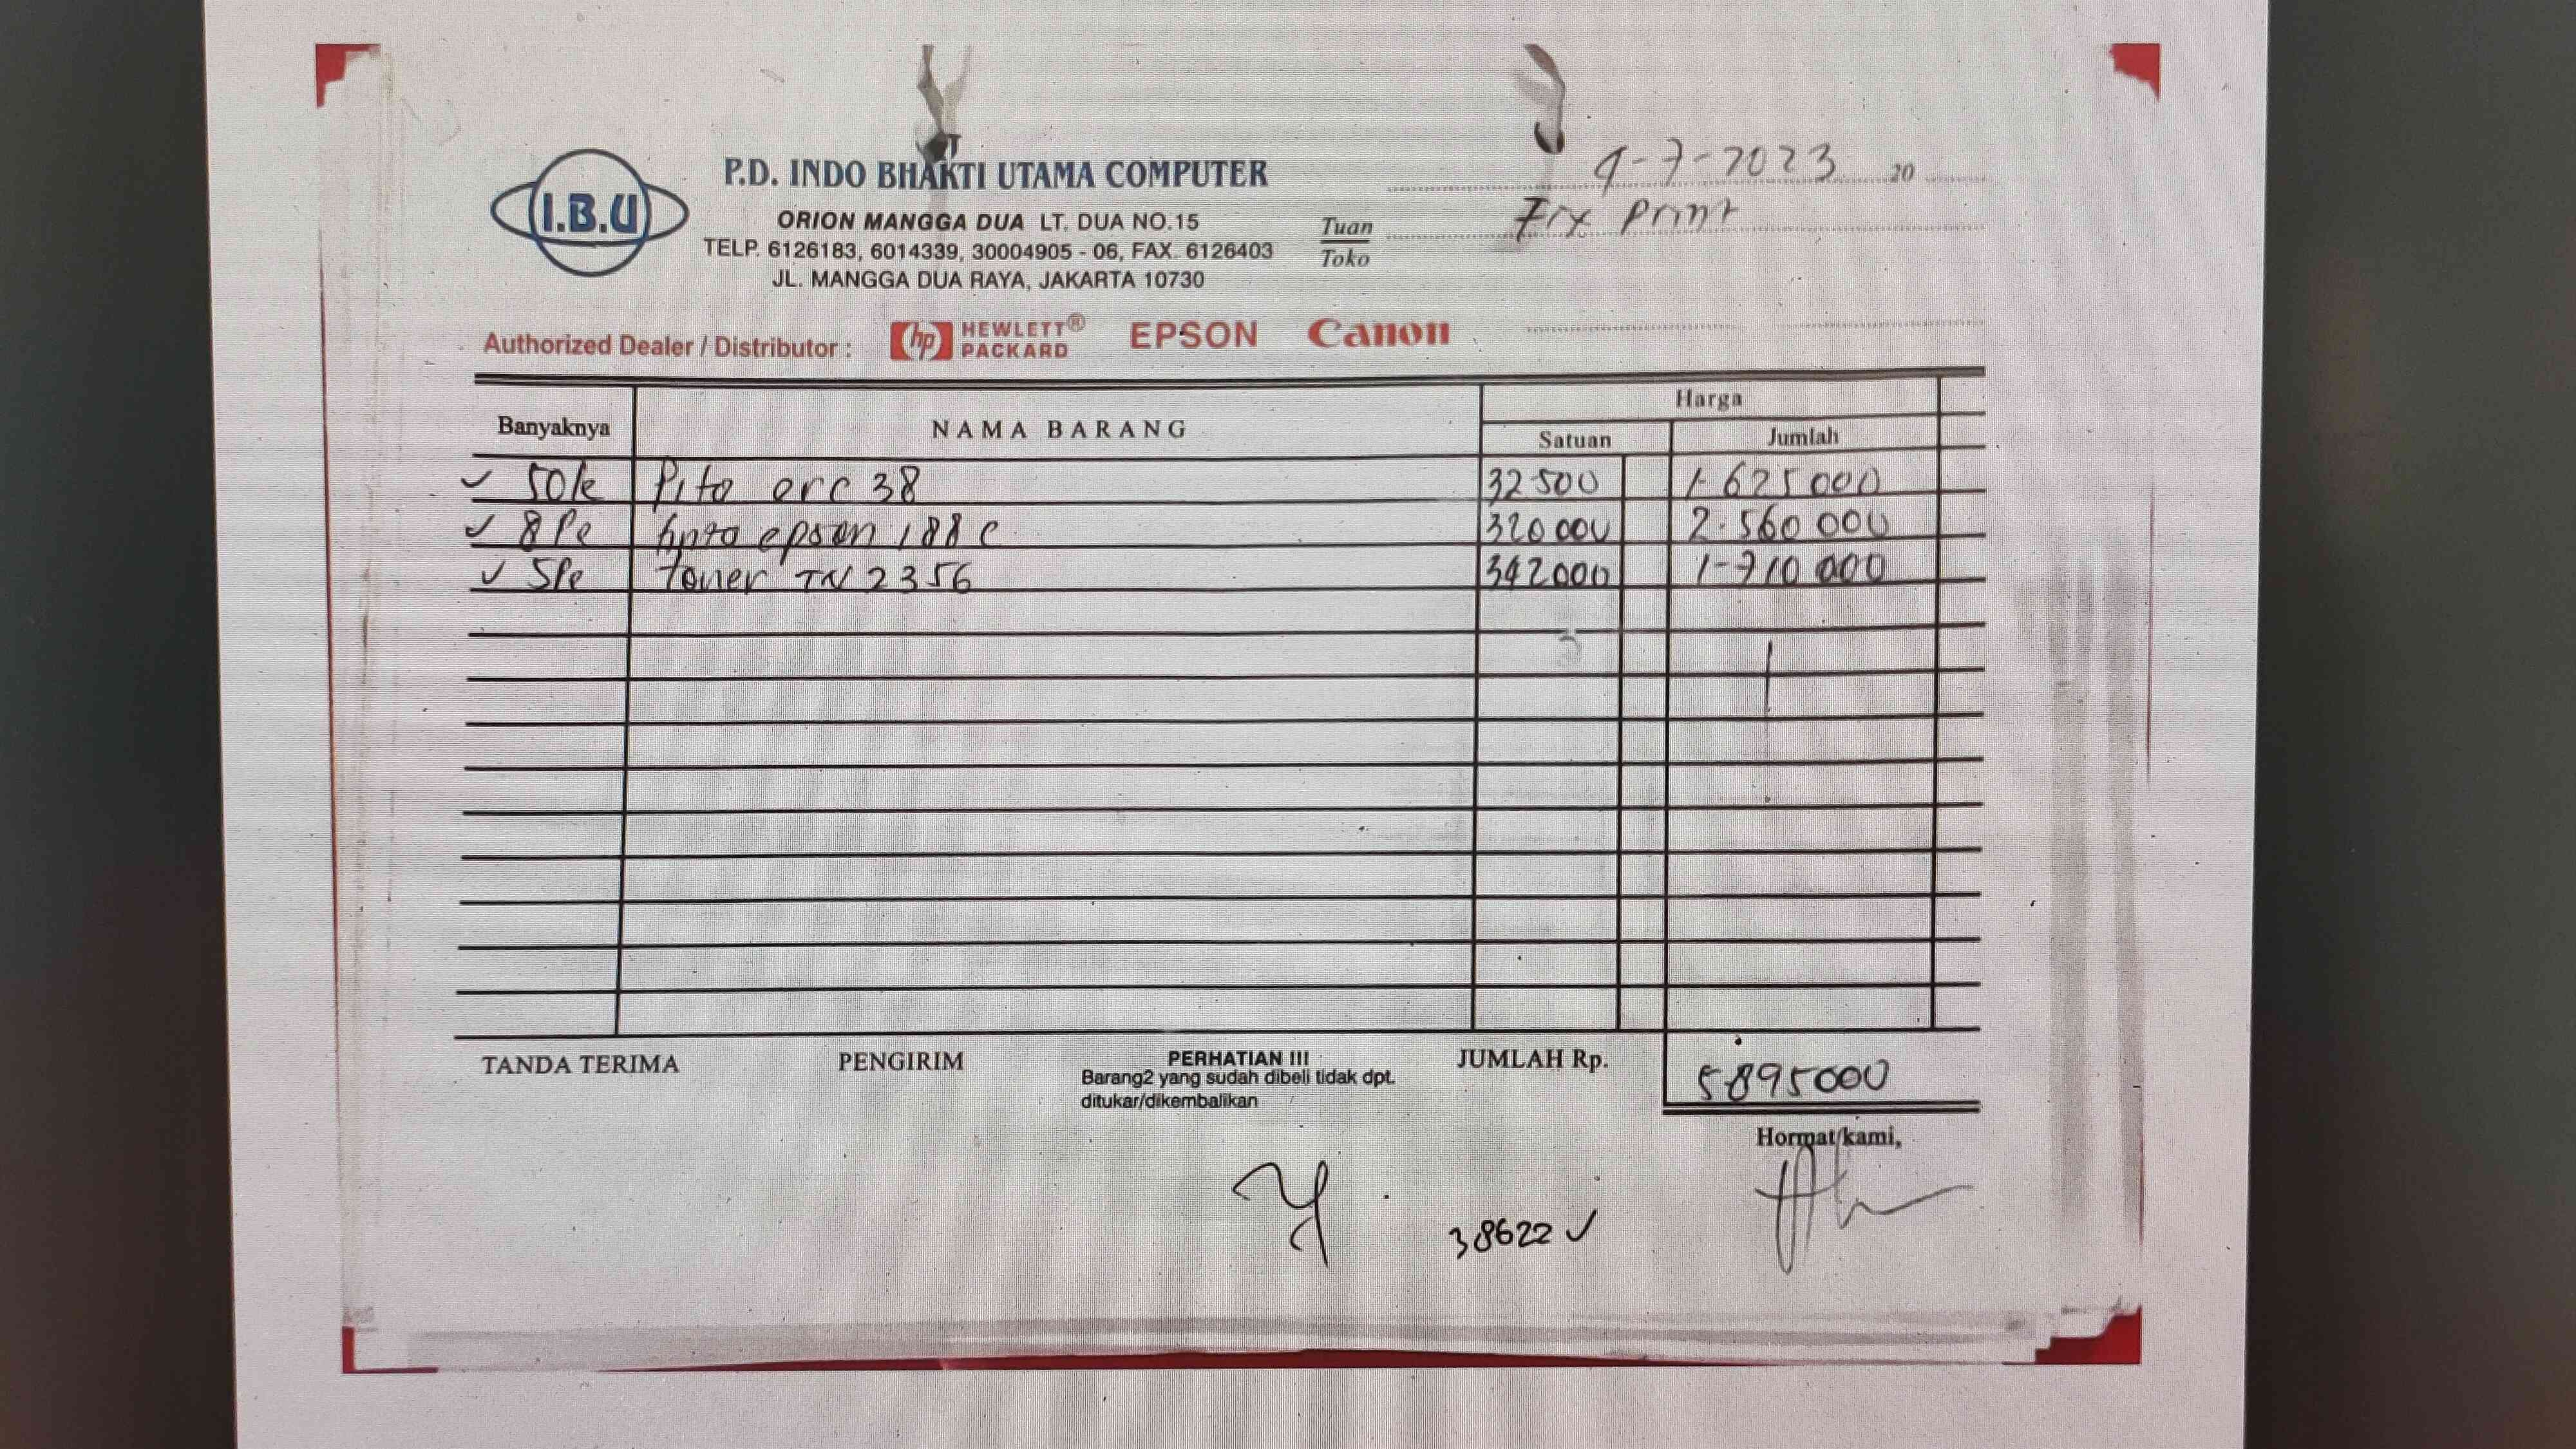 I.B.U
P.D. INDO BHAKTI UTAMA COMPUTER
ORION MANGGA DUA LT. DUA NO.15
TELP. 6126183, 6014339, 30004905 - 06, FAX. 6126403
JL. MANGGA DUA RAYA, JAKARTA 10730
-7-2023 20
Tuan
Toko
Fix Print
Authorized Dealer / Distributor : hp HEWLETT® PACKARD EPSON Canon
Banyaknya NAMA BARANG Harga
Satuan Jumlah
✓ 50 Pita erc 38 32 500 1.625 000
✓ 8 Pc tinta epson 188 c 320 000 2.560 000
✓ 5 Pc toner TN 2356 342000 1-710 000
TANDA TERIMA PENGIRIM PERHATIAN !!! JUMLAH Rp. 5895000
Barang2 yang sudah dibeli tidak dpt.
ditukar/dikembalikan
Hormat kami,
38622 ✓